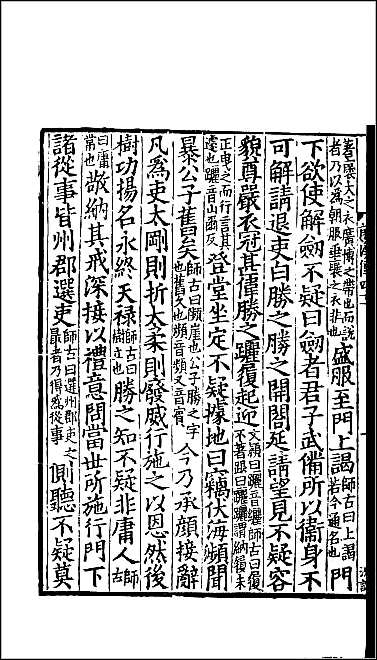 着裹大之衣廣博之帶也而說者乃以為朝服垂褒之衣非也盛服至門上謁師古曰上謁若今通名也門
下欲使解劍不疑曰劍者君子武備所以衞身不
可解請退吏白勝之勝之開閤延請望見不疑容
貌尊嚴衣冠甚偉勝之躧履起迎文穎曰躧音纚師古曰履不著跟曰躧躧謂納履未
正曳之而行言其遽也躧音山爾反登堂坐定不疑據地曰竊伏海瀕聞
暴公子舊矣師古曰瀕厓也公子勝之字也舊久也瀕音頻又音賓今乃承顏接辭
凡為吏太剛則折太柔則廢威行施之以恩然後
樹功揚名永終天祿師古曰樹立也勝之知不疑非庸人師古
曰庸常也敬納其戒深接以禮意問當世所施行門下
諸從事皆州郡選吏師古曰選州郡吏之最者乃得為從事側聽不疑莫